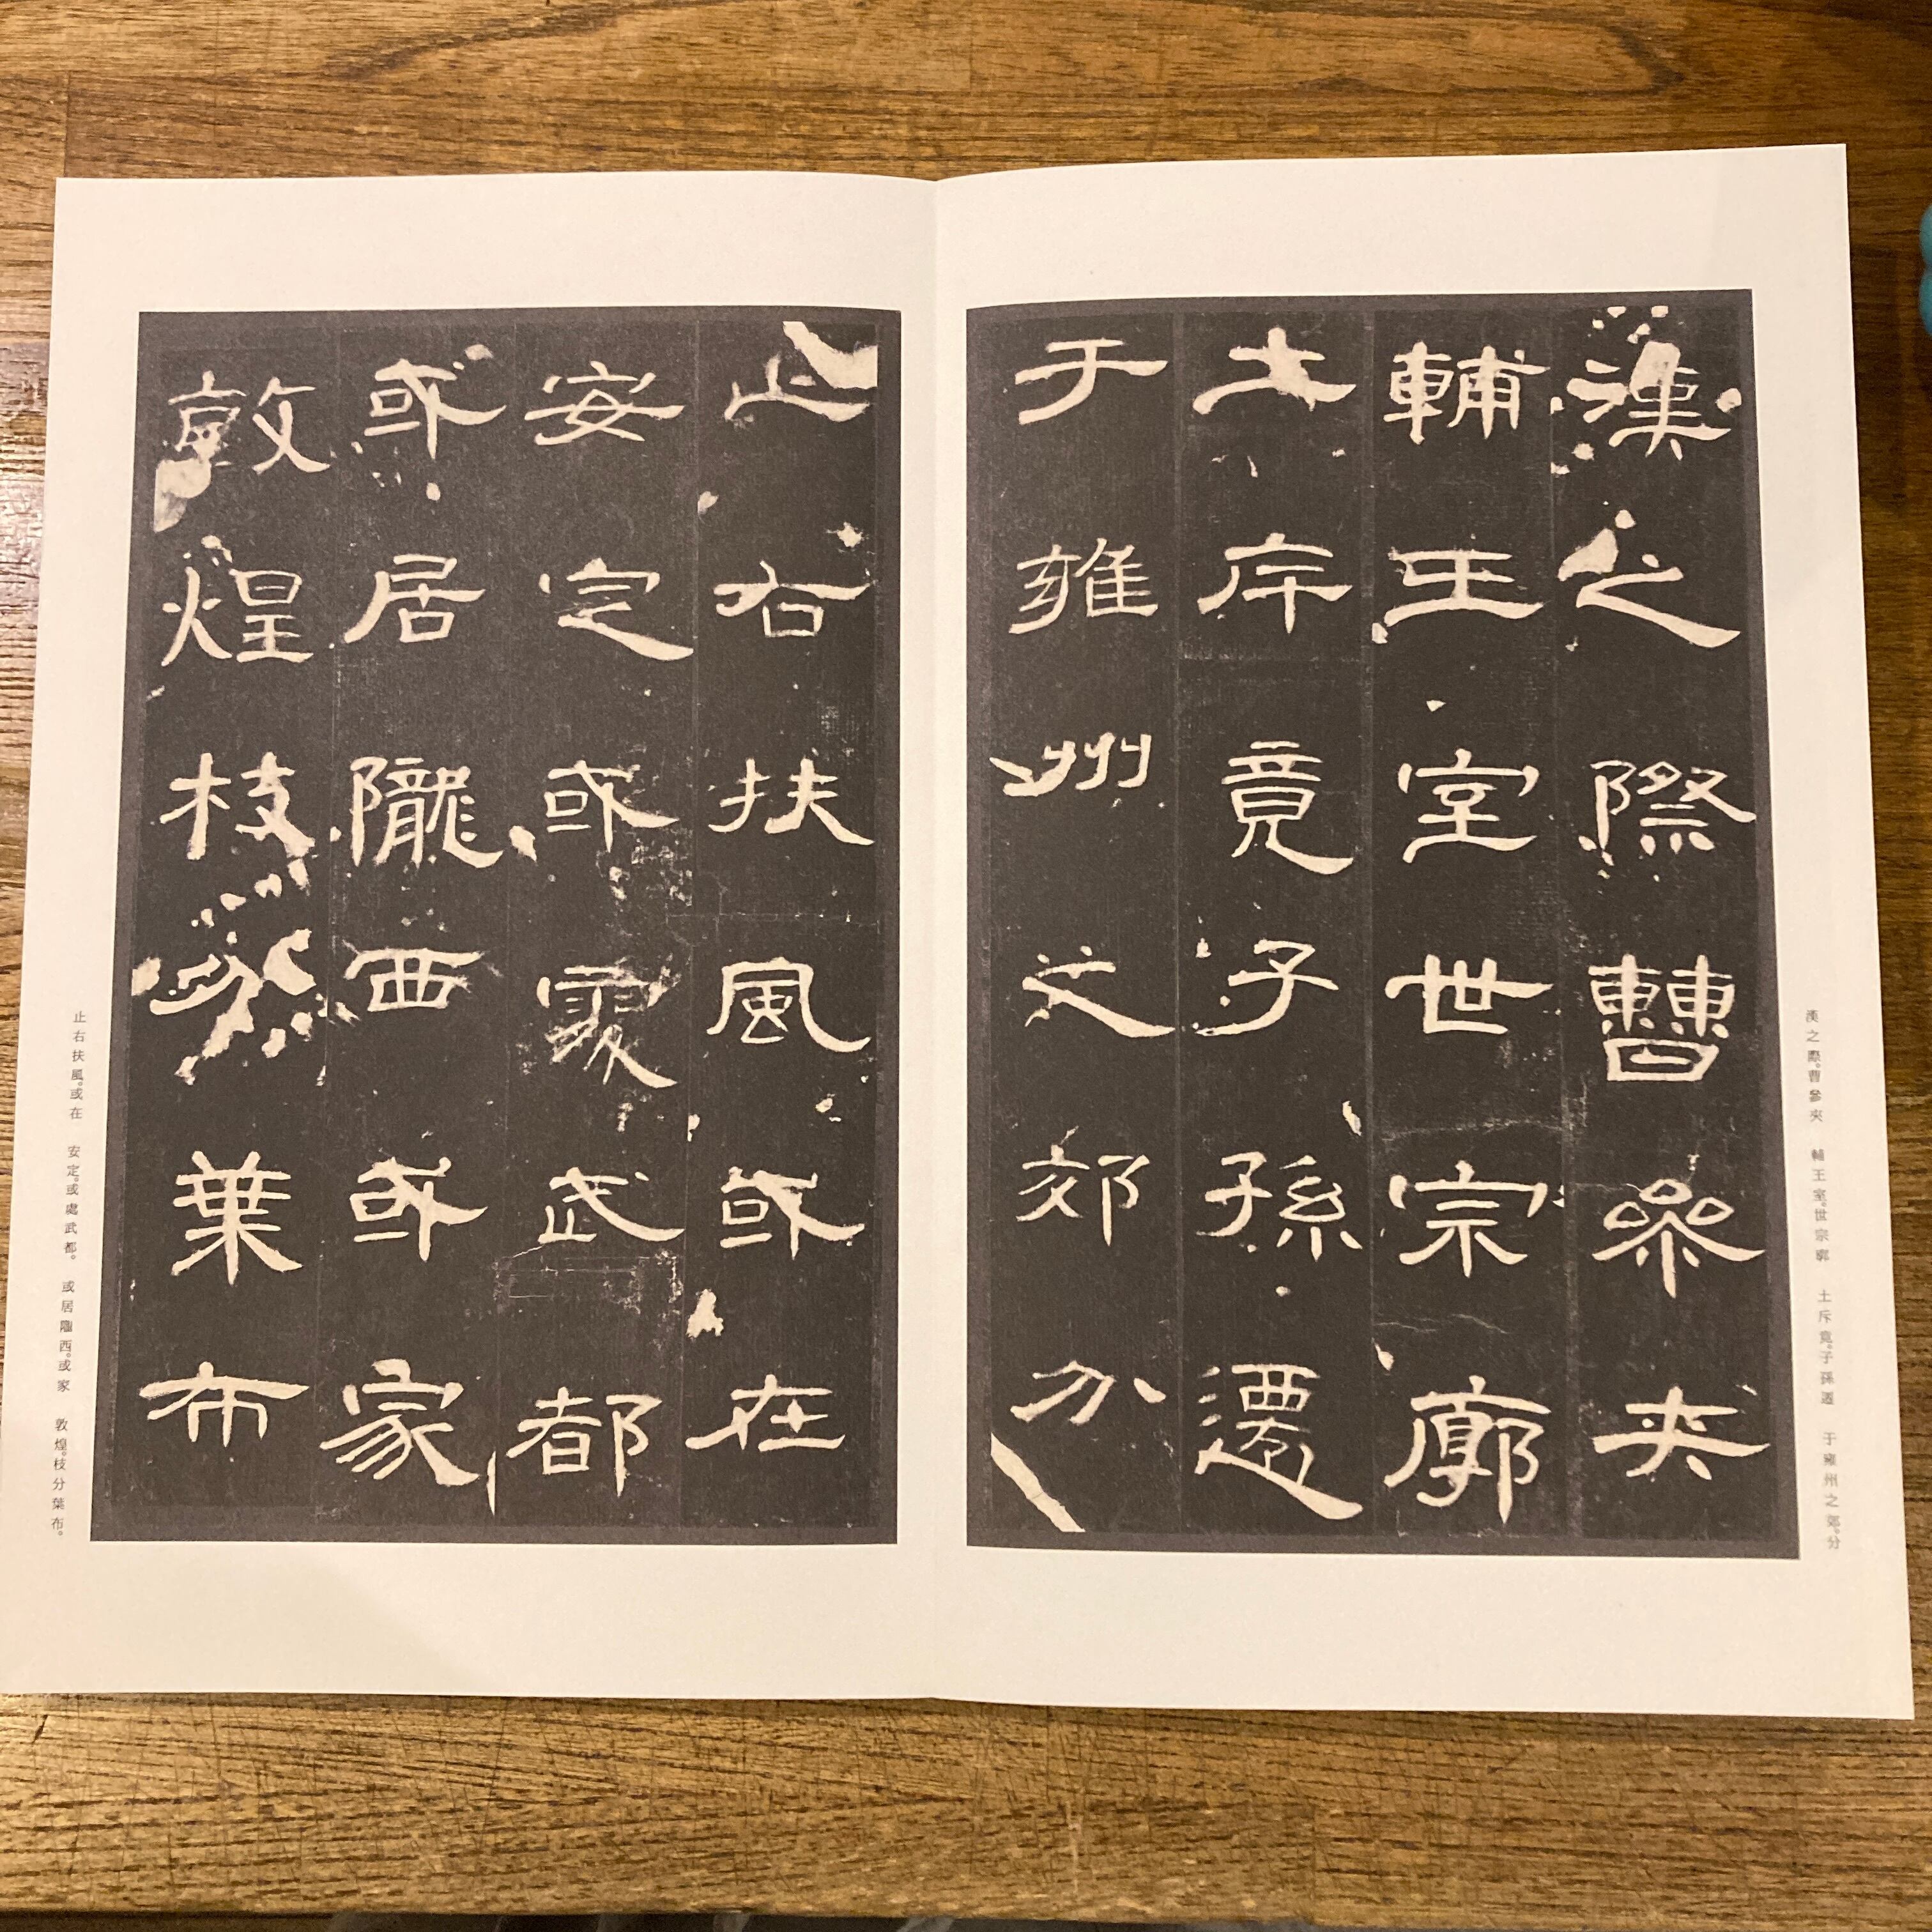 漢之際曹參夾
輔王室世宗廓
土斥竟子孫遷
于雍州之郊分
止右扶風或在
安定或處武都
或居隴西或家
敦煌枝分葉布
漢之際。曹參夾　輔王室。世宗廓　土斥竟。子孫遷　于雍州之郊。分
止右扶風。或在　安定。或處武都。　或居隴西。或家　敦煌。枝分葉布。